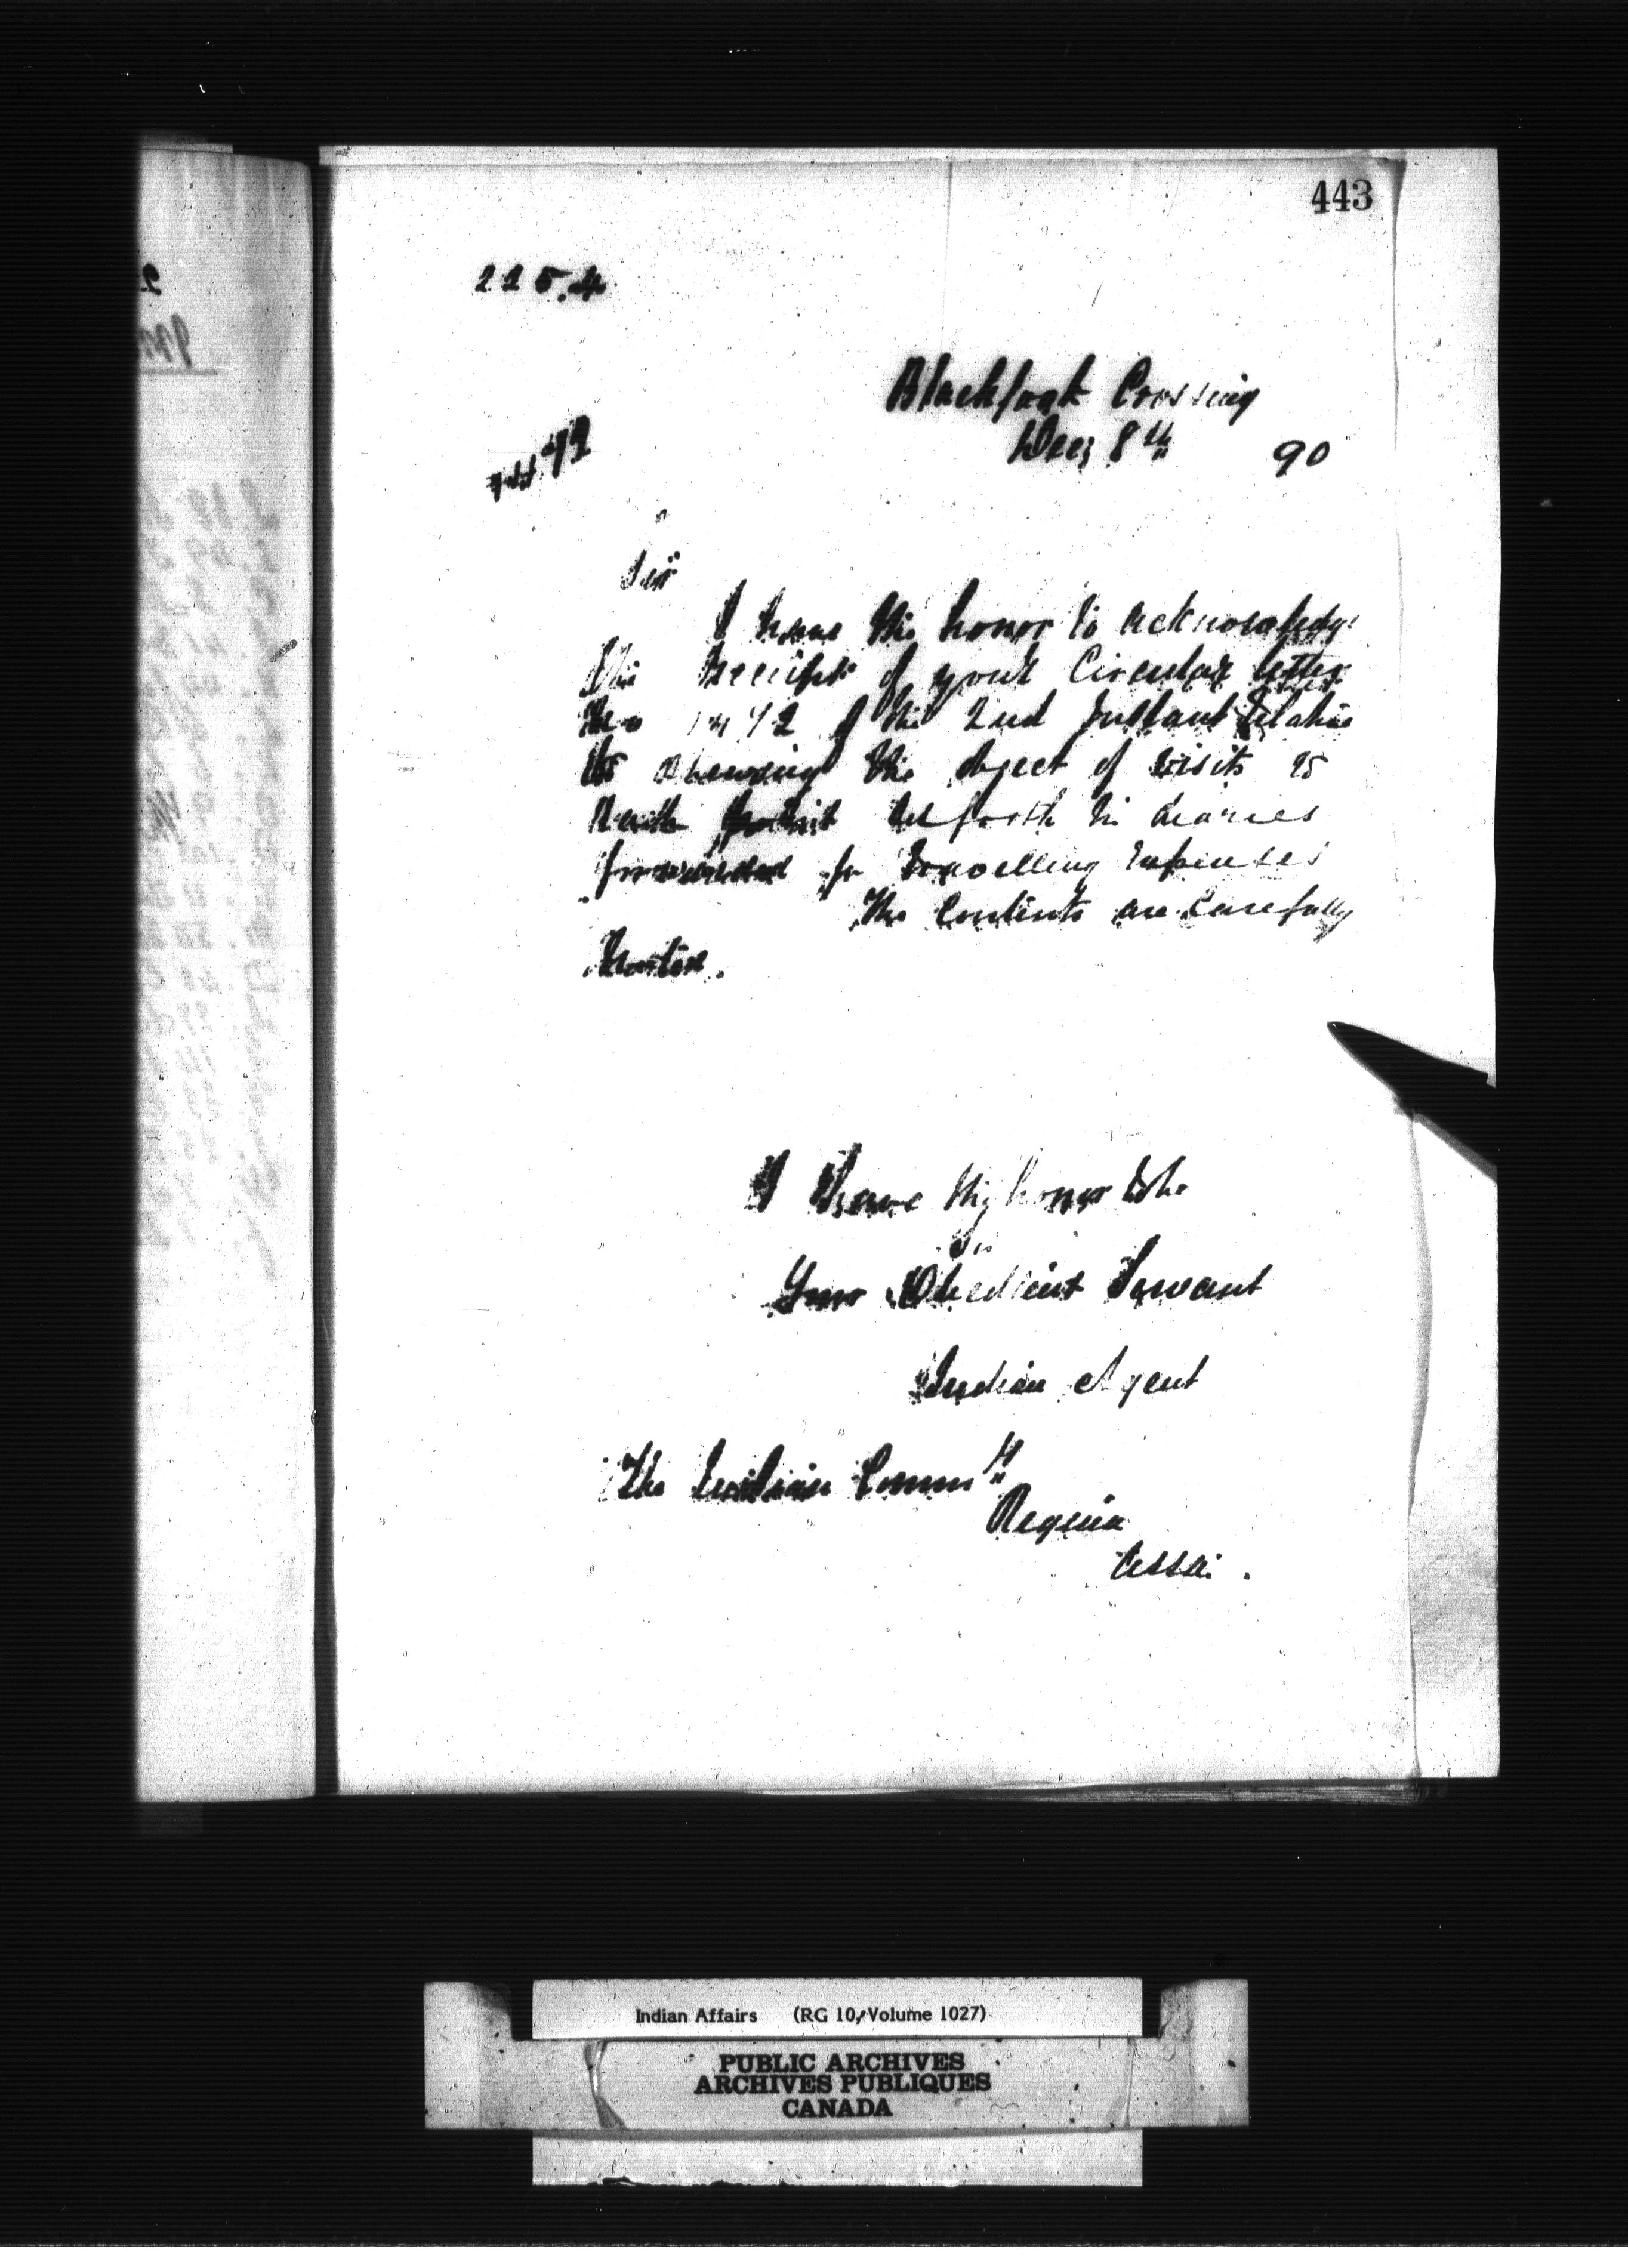 443
225.4
Blackfoot Crossing
Dec 8th 90
Sir
I have the honor to acknowledge
the receipt of your Circular letter
No 1472 of the 2nd Instant relative
to shewing the object of visits to
each point set forth in diaries
forwarded for travelling expenses
The Contents are Carefully
Noted.
I have the honor to be
Sir
Your Obedient Servant
Indian Agent
The Indian Commr
Regina
Assa.
Indian Affairs (RG 10, Volume 1027)
PUBLIC ARCHIVES
ARCHIVES PUBLIQUES
CANADA